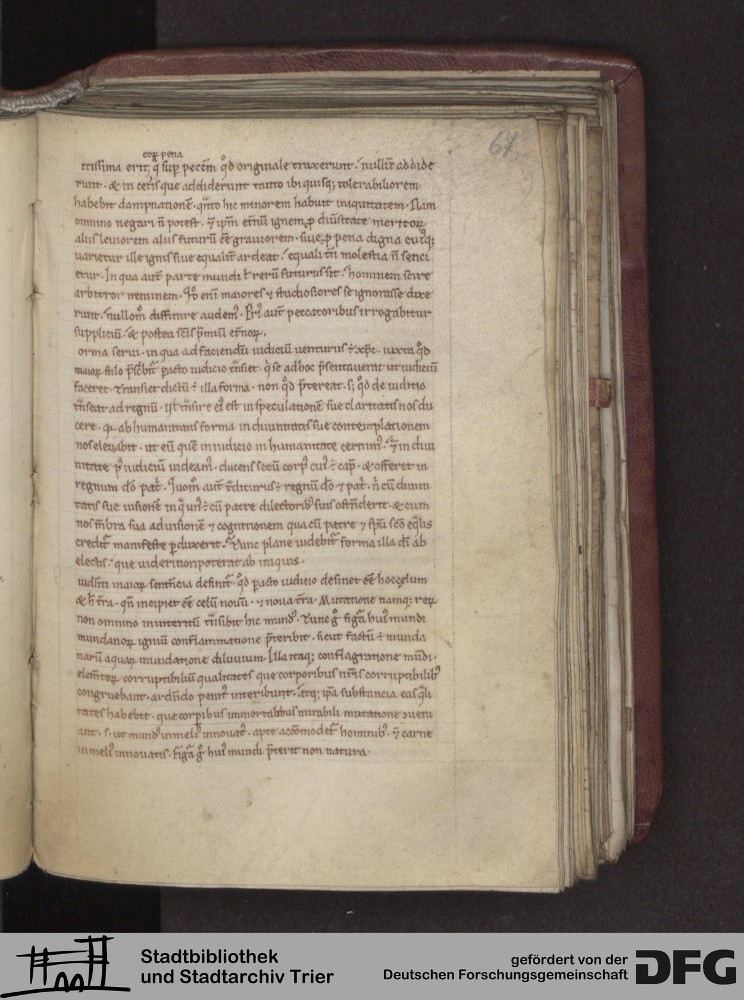 67
eoꝝ pena
tissima erit, q̄ sup̄ peccm̄ qd̄ originale traxerunt nullum addide
runt. & in ceteris que addiderunt tanto ibi quisq; tolerabiliorem
habebit dampnationē. q̄nto hic minorem habuit iniquitatem. Nam
omnino negari n̄ potest. ipm̄ et̄nū ignem ꝓ diu̅sitate meritoꝝ
aliis leuiorem aliis futurū ēe grauiorem. siue ꝓ pena digna cuiq;
uarietur ille ignis siue equalit̄ ardeat. equali tn̄ molestia n̄ senci
etur. In qua aut̄ parte mundi ł rerū futurus sit. hominem scire
arbitror neminem. Qd̄ enī maiores ⁊ studiosiores se ignorasse dixe
runt. nullom̄ diffinire audem᷒. Pri᷒ aut̄ peccatoribus irrogabitur
suppliciū. & postea sc̄is p̄miū et̄noꝝ.
orma serui. in qua ad faciendū iudiciū uenturus ÷ xp̄c. iuxta qd̄
maioꝝ stilo p̄scbit̄ pacto iudicio t̄nsiet. q̄ se ad hoc p̄sentauerat ut iudiciū
faceret. Transiet dictū ÷ illa forma. non qd̄ p̄tereat. s; qd̄ de iuditio
t̄nseat ad regnū. t̄nsire ei᷒ est in speculationē sue claritatis nos du
cere. ab humanitatis forma in diuinitatis sue contemplationem
nos eleuabit. ut eū quē in iudicio in humanitate cernim᷒. in diui
nitate p᷒ iudiciū uideam᷒. ducens secū corp᷒ cui᷒ ÷ cap̄. & offeret in
regnum dō pat̄. Quom̄ aut̄ t̄diturus ÷ regnū dō ⁊ pat̄. n̄ cū diuini
tatis sue uisionē in q̄ un᷒ ÷ cū patre dilectorib᷒ suis ostn̄derit. & cum
nos m̄bra sua ad uisionē ⁊ cognitionem qua cū patre ⁊ spū sc̄o eq̄lis
credit᷑ manifeste ꝑduxerit. Tunc plane uidebit᷑ forma illa dī ab
electis. que uideri non poterat ab iniquis.
iudiciū maioꝝ sentencia definit̄. qd̄ pacto iudicio desinet ēe hoc celum
& h̄ t̄ra. qn̄ incipiet ēe celū nouū. ⁊ noua t̄ra. Mutatione namq; reꝝ
non omnino interitū t̄nsibit hic mund᷒. Tunc g̊ figa̅ hui᷒ mundi
mundanoꝝ igniū conflammatione p̄teribit. sicut factū ÷ munda
narū aquaꝝ inundatione diluuium. Illa itaq; conflagratione mūdi.
elem̄toꝝ corruptibiliū qualitates que corporibus nrīs corruptibilib᷒
congruebant. ardn̄do penit᷒ interibunt. atq; ipa̅ substancia eas q̄li
tates habebit. que corꝑibus immortalibus mirabili mutatione ɔueni
ant. s. ut mund᷒ in meli᷒ innouat᷒. apte acc̄omodet᷑ hominib᷒. carne
in meli᷒ innouatis. figa̅ g̊ hui᷒ mundi p̄terit non natura.
Stadtbibliothek
und Stadtarchiv Trier
gefördert von der
Deutschen Forschungsgemeinschaft
DFG